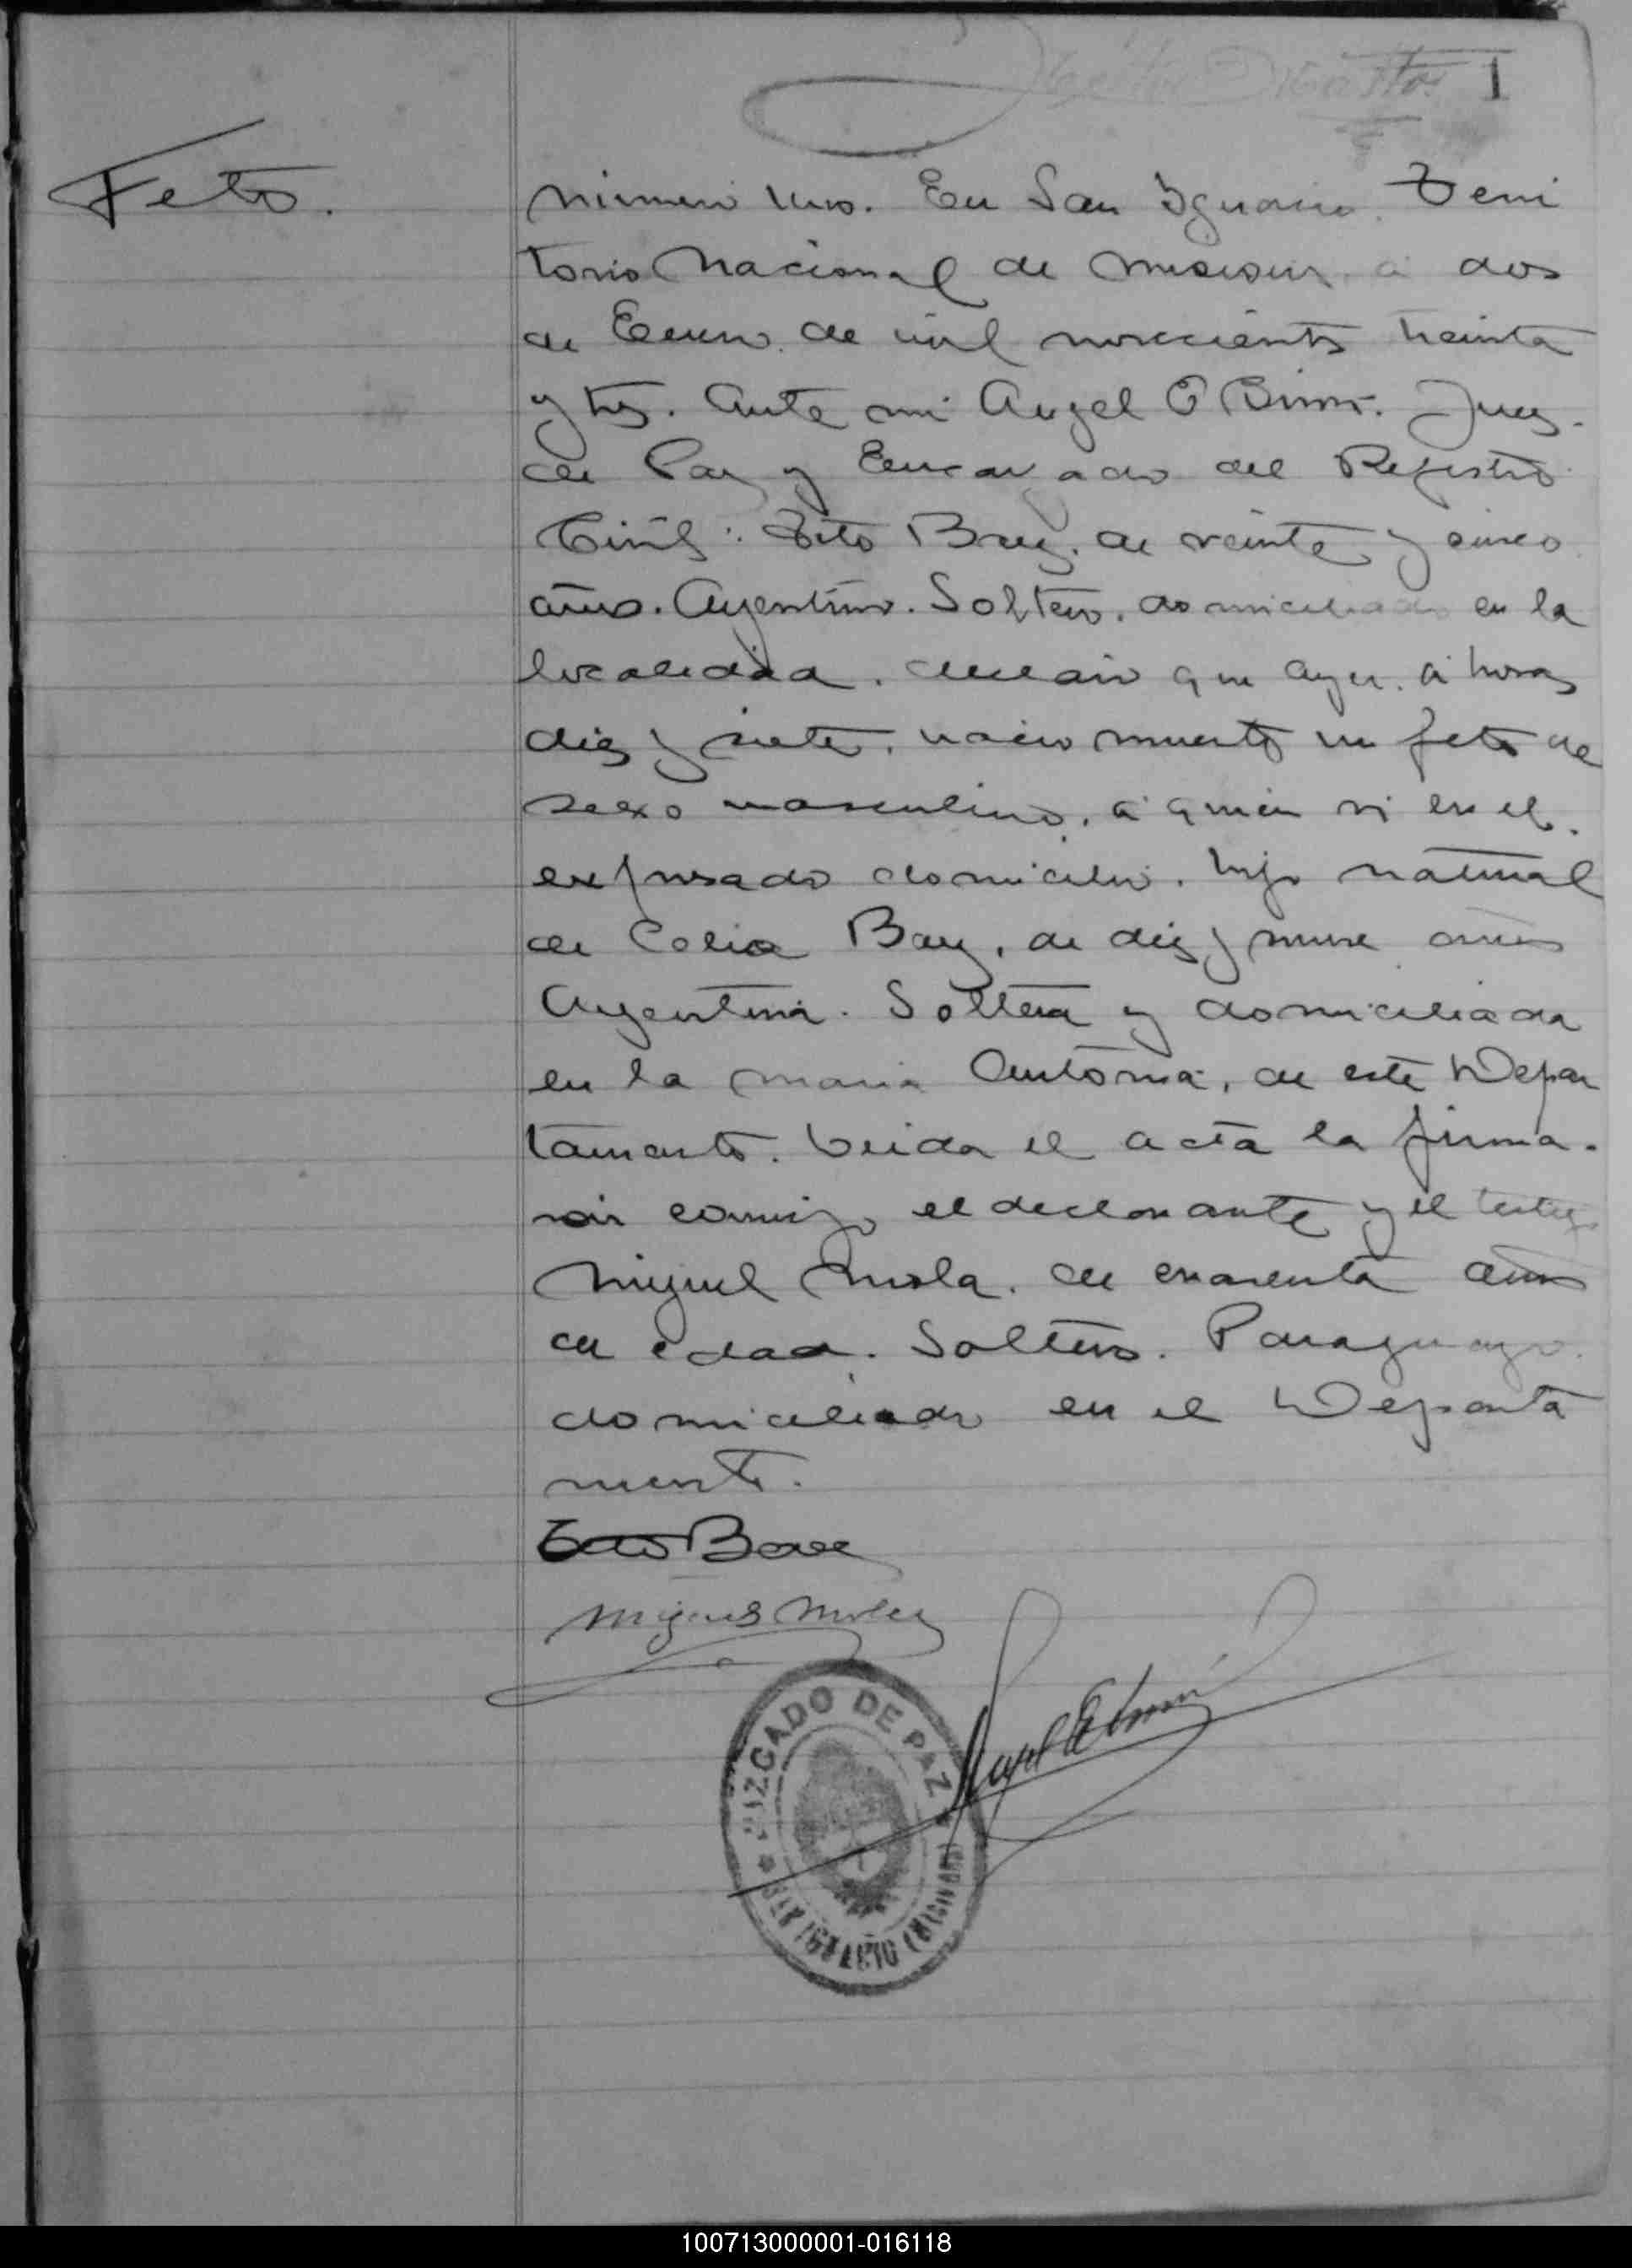 1
Feto.
número uno. En San Ignacio. Terri
torio Nacional de Misiones, a dos
de Enero de mil novecientos treinta
y tres. Ante mi Angel E Juez
de Paz y Encargado del Registro
Civil: Tito Baez, de veinte y cinco
años. Argentino. Soltero. domiciliado en la
localidad. declaró que ayer. a horas
diez y siete, nació muerto un feto de
sexo masculino, a quien vi en el
expresado domicilio. hijo natural
de Celia Baez, de diez y nueve años
Argentina. Soltera y domiciliada
en la Maria Antonia, de este Depar
tamento. Leida el acta la firma-
ron conmigo el declarante y el testigo
Miguel Mola. de cuarenta años
de edad. Soltero. Paraguayo.
domiciliado en el Departa
mento.
Tito Baez
Miguel Mola
Angel E
JUZGADO DE PAZ
SAN IGNACIO (MISIONES)
100713000001-016118